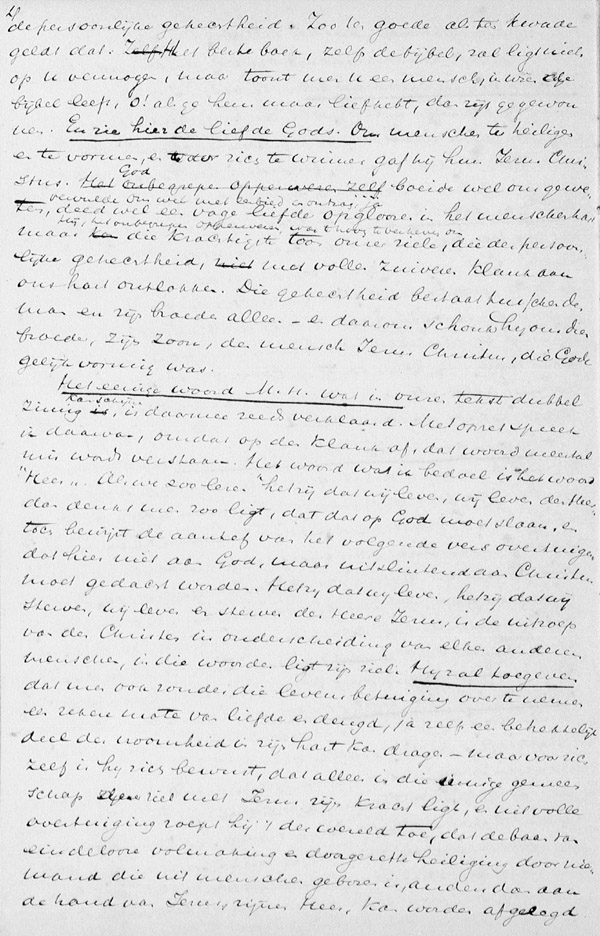 de persoonlijke gehechtheid. Zoo ten goede als ten kwade
geldt dat. Zelfs het beste boek, zelfs de bijbel, zal ligt niets
op u vermogen, maar toont men u een mensch, in wien die
bijbel leeft, O! als ge hem maar liefhebt, dan zijt ge gewon
nen. En zie hier de liefde Gods. Om menschen te heiligen
en te vormen, en voor zich te winnen gaf hij hun Jezus Chri-
stus. God
Het onbegrepen opperwezen zelf boeide wel ons gewe
ten, deed wel een vage liefde opgloren in het menschenhart
hij, het onbegrepen opperwezen, was te hoog verheven om
maar den die krachtigste toon onzer ziele, die der persoon-
lijke gehechtheid, niet met vollen zuiveren klank aan
ons hart ontlokken. Die gehechtheid bestaat tusschen den
man en zijn broeder alleen – en daarom schonk hij ons dien
broeder, Zijn Zoon, den mensch Jezus Christus, die Gode
gelijkvormig was.
Het eenige woord M. H. wat in onzen tekst dubbel
kan schijnen
zinnig is, is daarmee reeds verklaard. Met opzet spreek
ik daarvan, omdat op den klank af, dat woord meestal
mis wordt verstaan. Het woord wat ik bedoel is het woord
"Heer". Als we zoo lezen "hetzij dat wij leven, wij leven den Heer
dan denkt men zoo ligt, dat dat op God moet slaan, en
toch bewijst de aanhef van het volgende vers overtuigend
dat hier niet aan God, maar uitsluitend aan Christus
moet gedacht worden. Hetzij dat wij leven, hetzij dat wij
sterven, wij leven en sterven den Heere Jezus, is de uitroep
van den Christen in onderscheiding van elken anderen
mensch en, in die woorden ligt zijn ziel. Hij zal toegeven
dat men ook zonder die levensbetuiging over te nemen
een zeker mate van liefde en deugd, ja zelfs een betrekkelijk
deel der vroomheid in zijn hart kan dragen – maar voor zich
zelf is hij zich bewust, dat alleen in die innige gemeen
schap zijner ziel met Jezus zijn kracht ligt, en uit volle
overtuiging roept hij 't der wereld toe, dat de baan van
eindelooze volmaking en doorgezette heiliging door nie-
mand die uit menschen geboren is, anders dan aan
de hand van Jezus, zijnen Heer, kan worden afgelegd